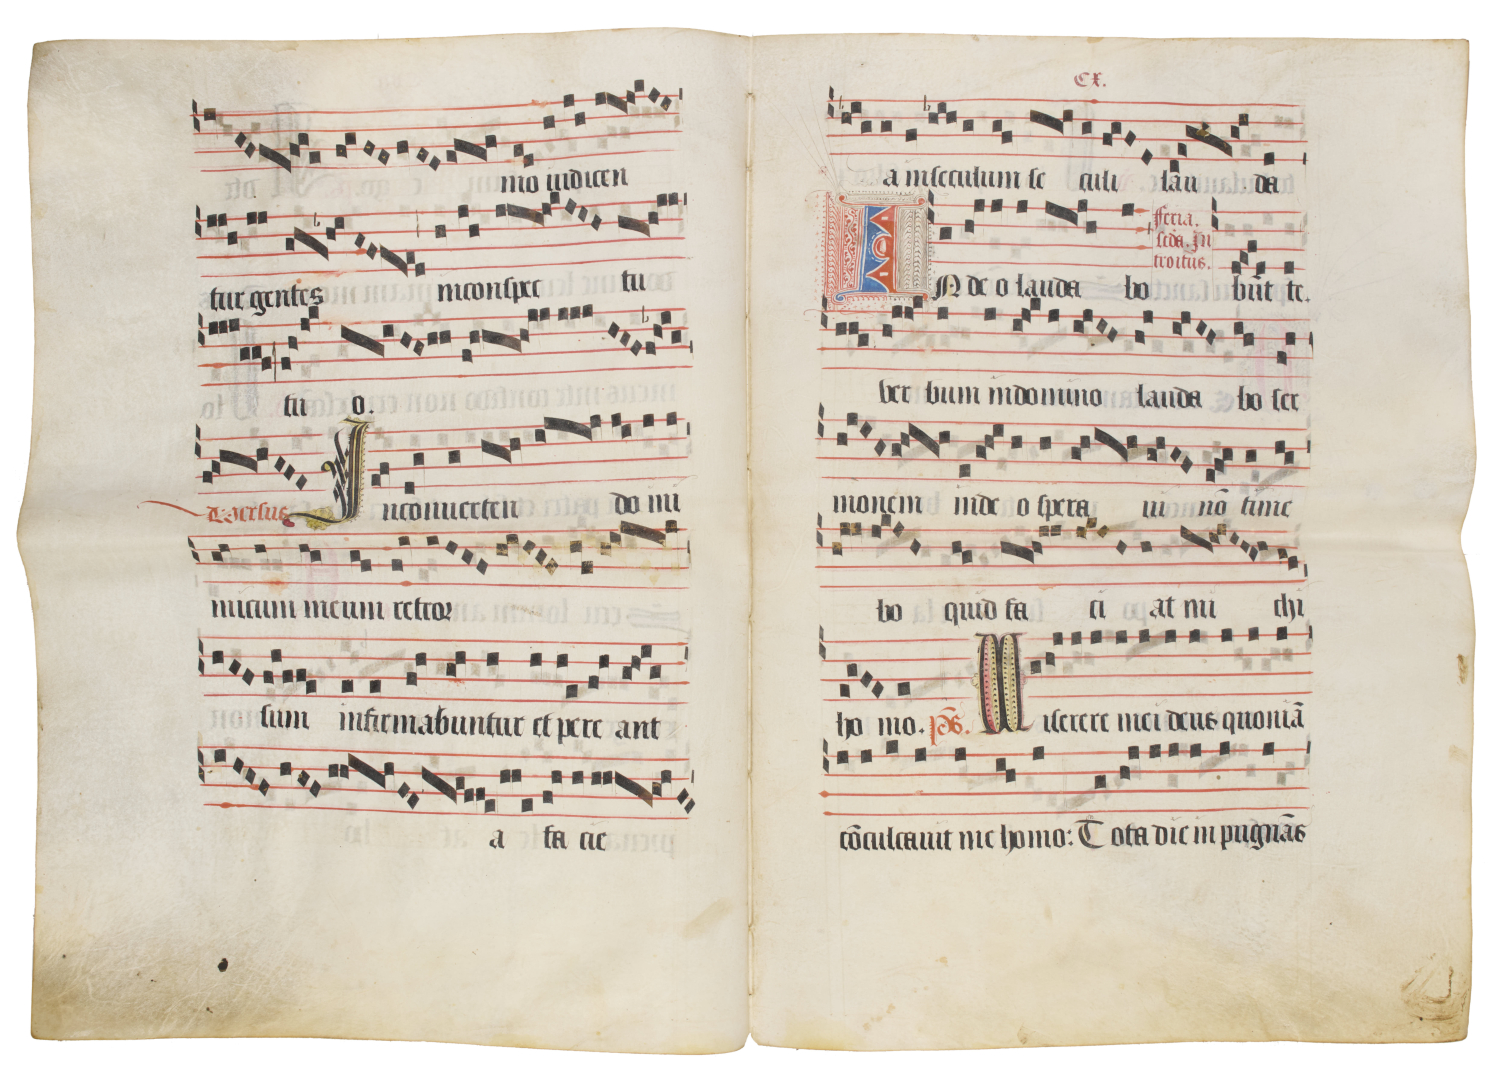 mo iudicen
tur gentes inconspec tu
tu o.
Versus Inconuerten do ini
micum meum retror
sum infirmabuntur et pere ant
a fa cie
CX.
a inseculum se culi lau da
bunt te.
feria.
scda. In
troitus.
IN de o lauda bo
ver bum indomino lauda bo ser
monem inde o spera ui nō time
bo quid fa ci at mi chi
ho mo. ps. Miserere mei deus quoniā
cōculcauit me homo: Tota die in pugnās